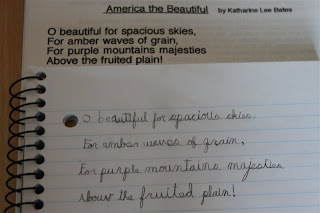 America the Beautiful by Katharine Lee Bates
O beautiful for spacious skies,
For amber waves of grain,
For purple mountains majesties
Above the fruited plain!
O beautiful for spacious skies
For amber waves of grain,
For purple mountains majesties
Above the fruited plain!